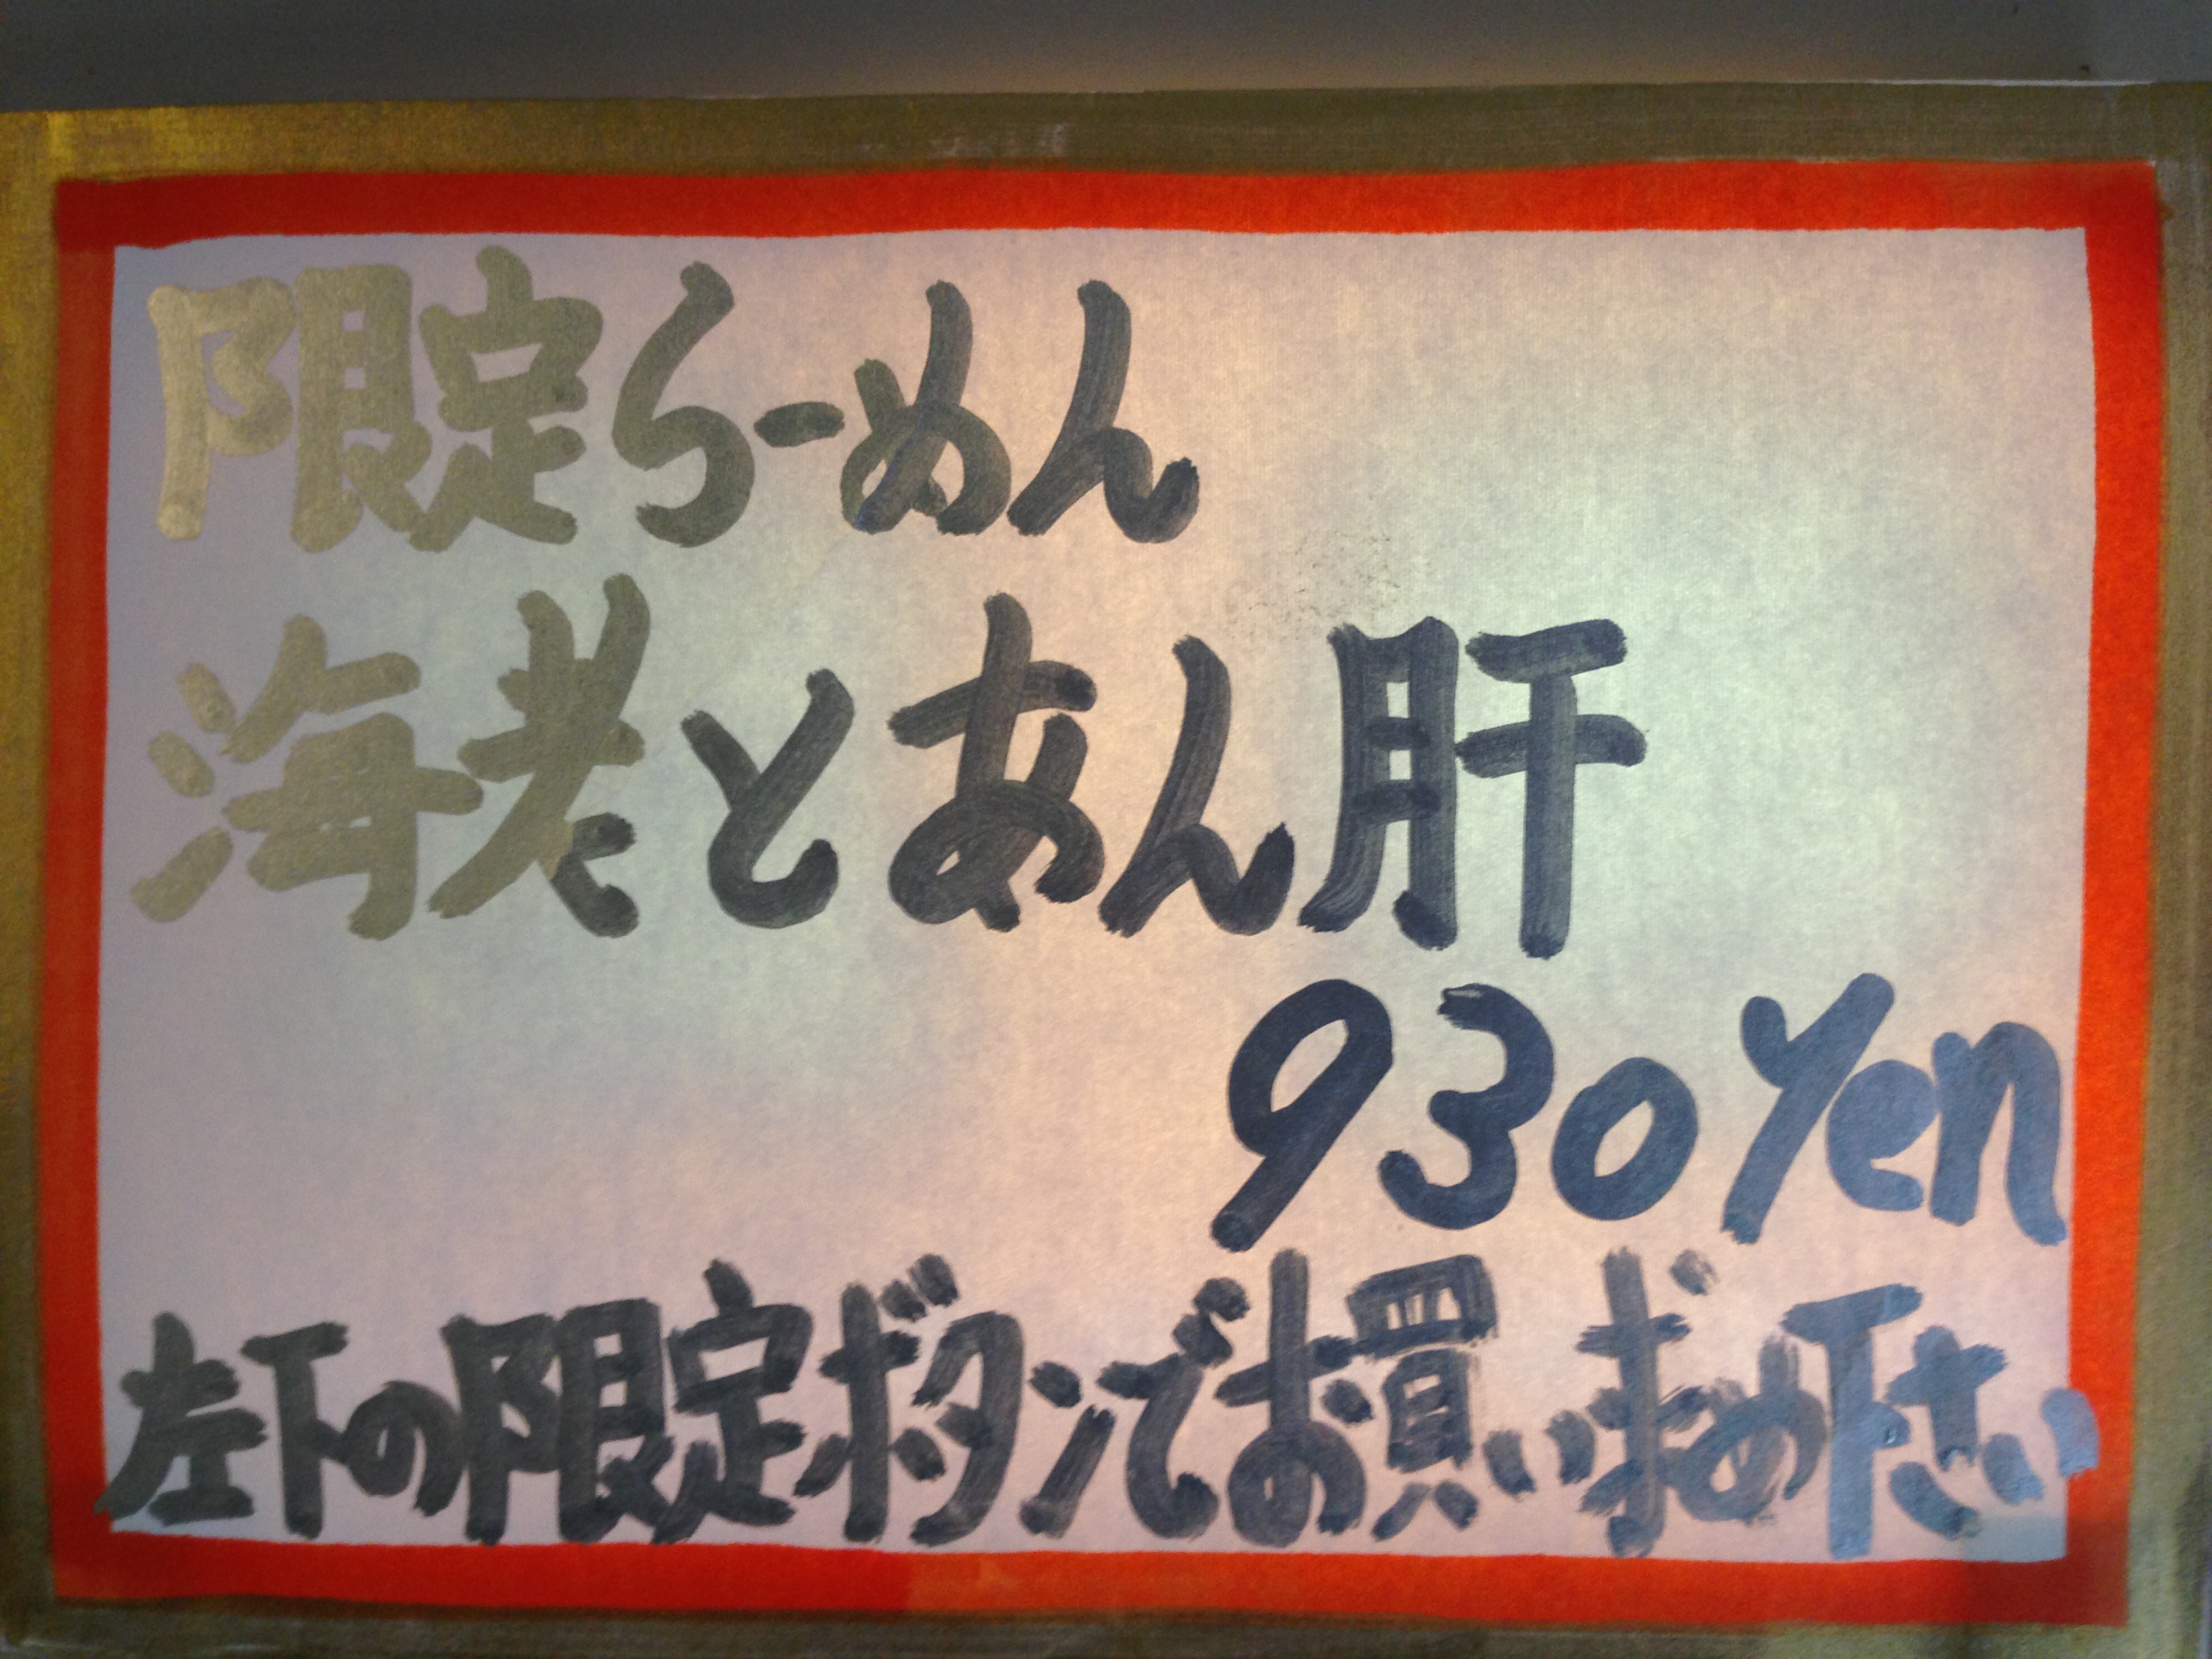 限定らーめん
海老とあん肝
930yen
左下の限定ボタンでお買い求め下さい